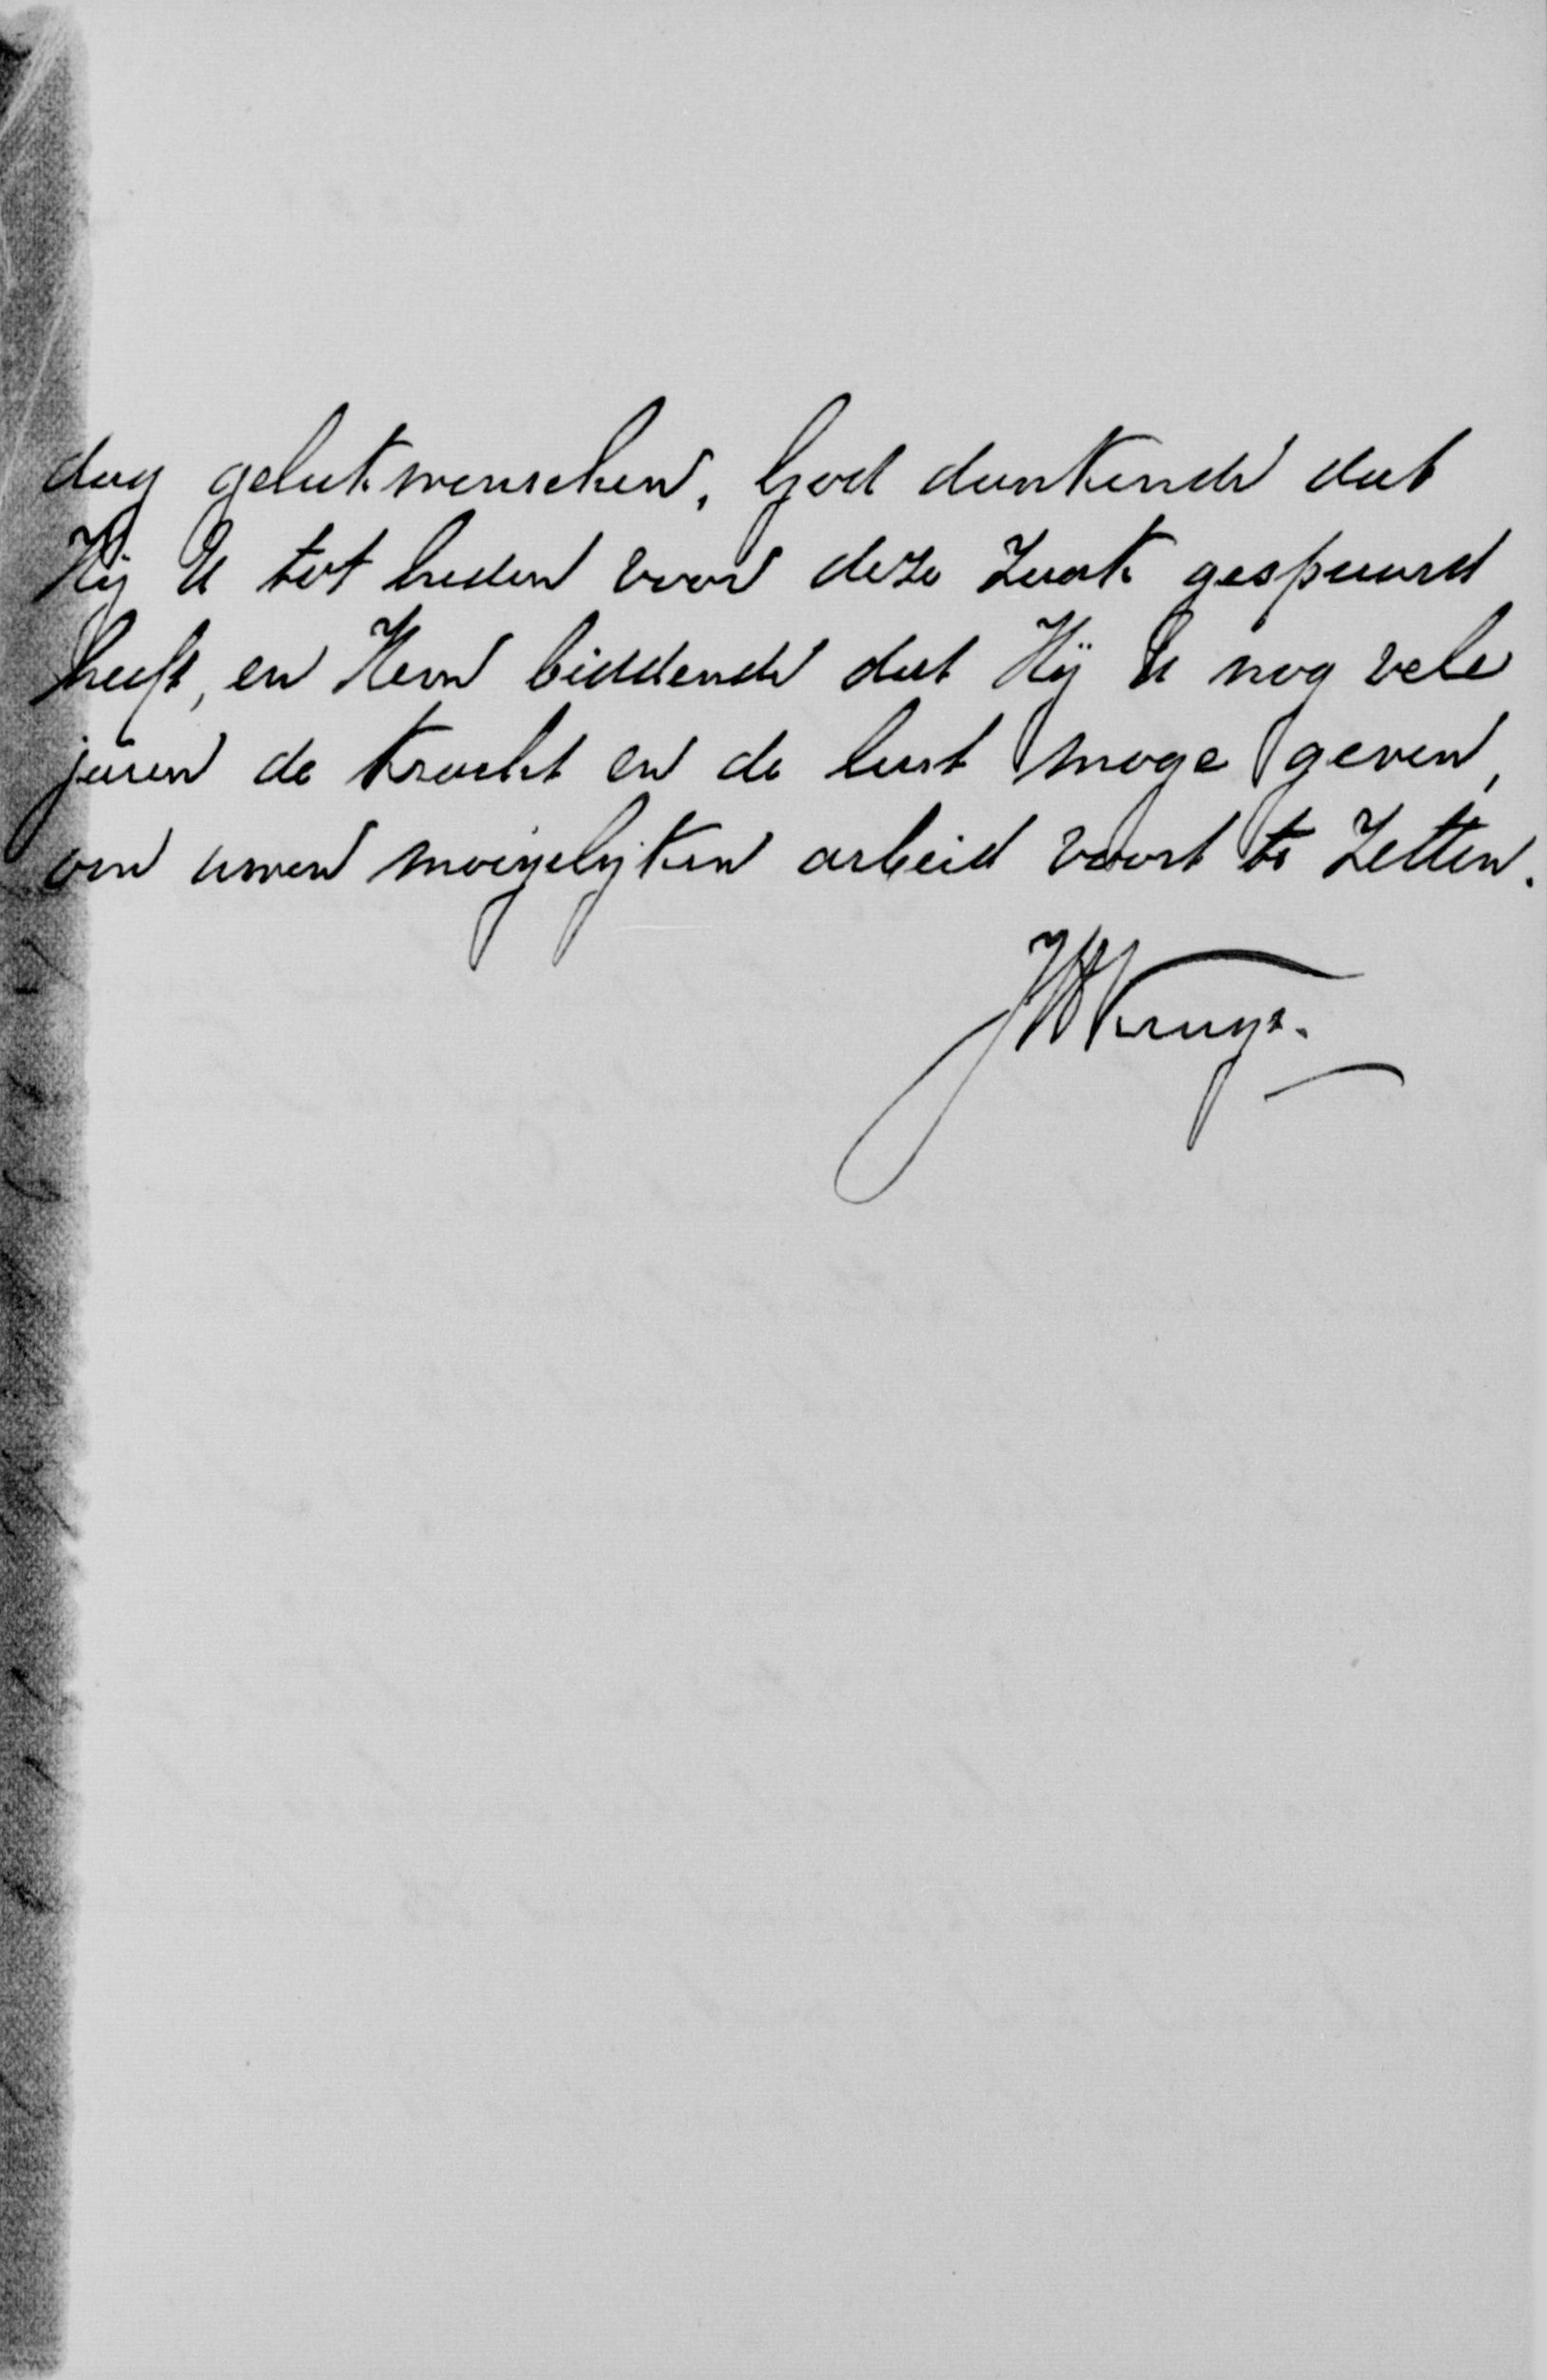 dag gelukwenschen, God dankende dat
Hij U tot heden voor deze zaak gespaard
heeft, en Hem biddende dat Hij U nog vele
jaren de kracht en de lust moge geven,
om uwen moeijelijken arbeid voort te zetten.
JWKruyt.